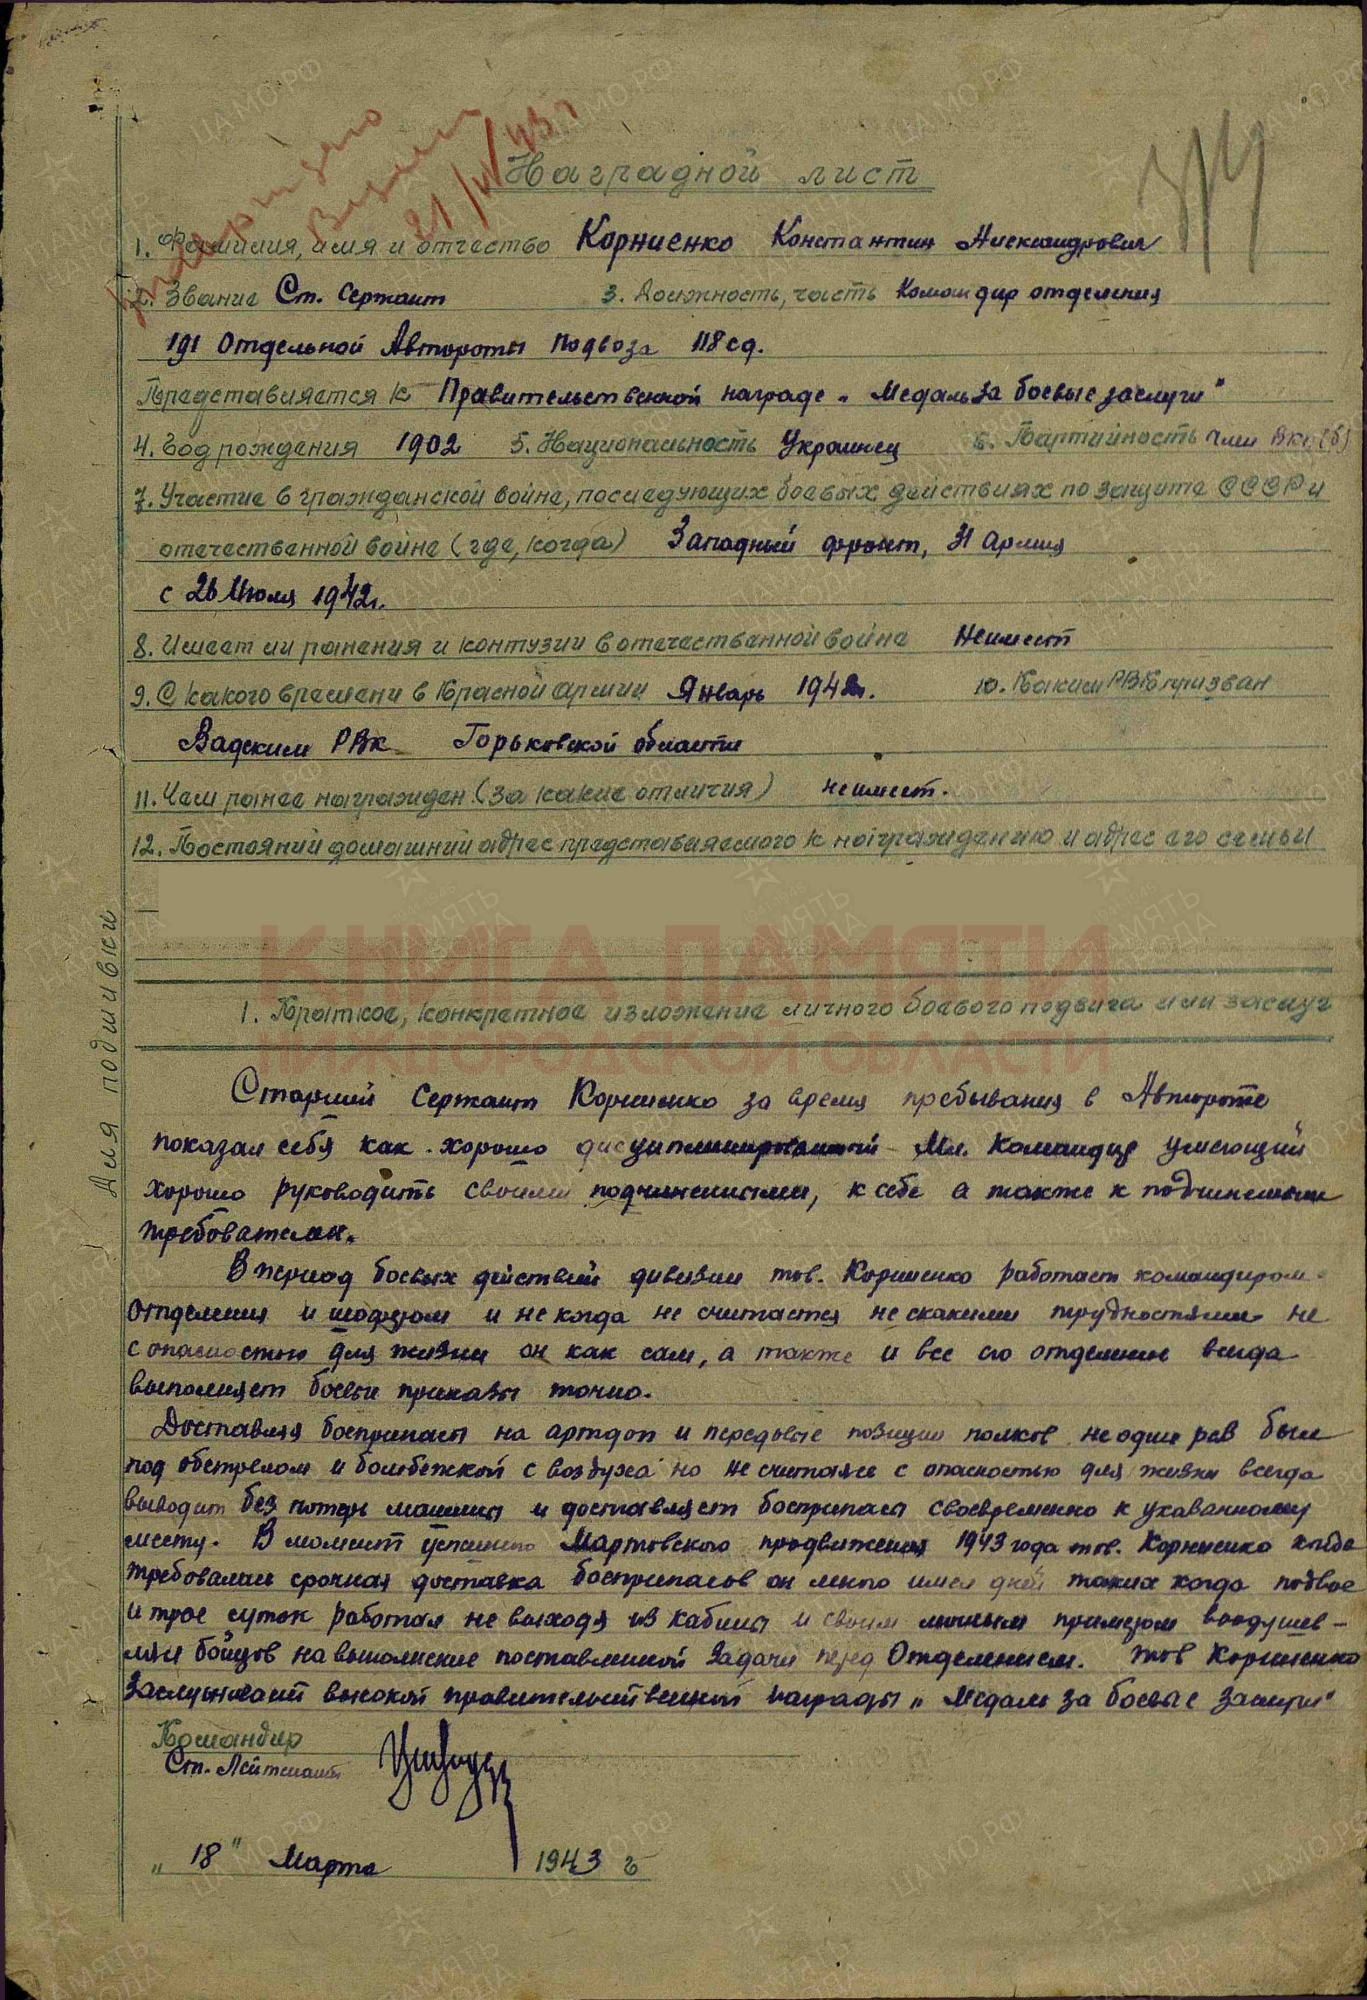 Наградной лист
314
1. Фамилия, имя и отчество Корниенко Константин Александрович
2. Звание Ст. Сержант 3. Должность, часть Командир отделения
191 Отдельной Автороты Подвоза 118 сд.
Представляется к Правительственной награде „Медаль За боевые заслуги"
4. Год рождения 1902 5. Национальность Украинец 6. Партийность член ВКП(б)
7. Участие в гражданской войне, последующих боевых действиях по защите СССР и
отечественной войне (где, когда) Западный фронт, 31 Армия
с 26 Июля 1942г.
8. Имеет ли ранения и контузии в отечественной войне Неимеет
9. С какого времени в Красной армии Январь 1942г. 10. Каким РВК призван
Вадским РВК Горьковской области
11. Чем ранее награжден (за какие отличия) неимеет.
12. Постояний домашний адрес представляемого к награждению и адрес его семьи
КНИГА ПАМЯТИ
НИЖЕГОРОДСКОЙ ОБЛАСТИ
Для подшивки
1. Краткое, конкретное изложение личного боевого подвига или заслуг
Старший Сержант Корниенко за время пребывания в Автороте
показал себя как хорошо дисциплинированный Мл. Командир умеющий
хорошо руководить своими подчиненными, к себе а также к подчиненным
требователен.
В период боевых действий дивизии тов. Корниенко работает командиром
отделения и шофером и не когда не считается не скакими трудностями не
с опасностью для жизни он как сам, а также и все его отделение всегда
выполняет боевые приказы точно.
Доставляя боеприпасы на артдоп и передовые позиции полков неодин раз был
под обстрелом и бомбежкой с воздуха но не считаясь с опасностью для жизни всегда
выводит без потерь машины и доставляет боеприпасы своевременно к указанному
месту. В момент успешного Мартовского продвижения 1943 года тов. Корниенко когда
требовалась срочная доставка боеприпасов он много имел дней таких когда подвое
и трое суток работал не выходя из кабины и своим личным примером воодушев-
лял бойцов на выполнение поставленной Задачи перед Отделением. тов Корниенко
Заслуживает высокой правительственной награды „Медаль за боевые заслуги"
Командир
Ст. Лейтенант
„18" Марта 1943 г